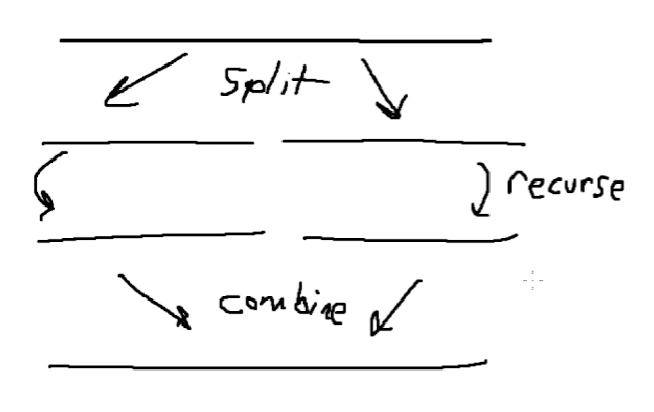 split
recurse
combine